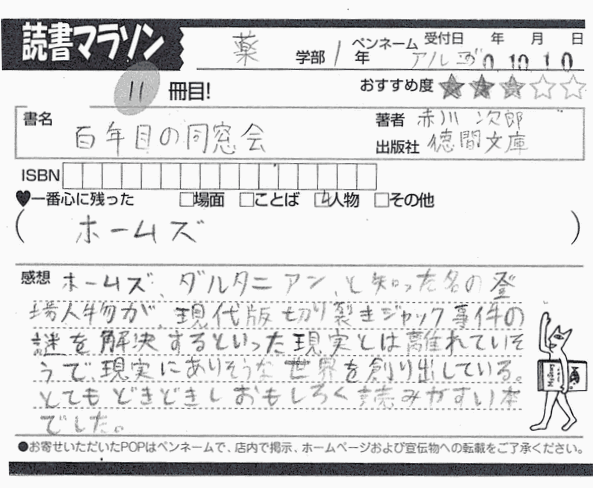 読書マラソン
薬 学部 1 年 ペンネーム アルゴ 受付日 年 月 日
0.10.10
11 冊目!
おすすめ度 ★★★☆☆
書名 百年目の同窓会
著者 赤川次郎
出版社 徳間文庫
ISBN
♥一番心に残った □場面 □ことば ☑人物 □その他
( ホームズ )
感想 ホームズ、ダルタニアン、と知った名の登
場人物が、現代版切り裂きジャック事件の
謎を解決するといった現実とは離れていそ
うで現実にありそうな世界を創り出している。
とてもどきどきしおもしろく読みやすい本
でした。
●お寄せいただいたPOPはペンネームで、店内で掲示、ホームページおよび宣伝物への転載をご了承ください。